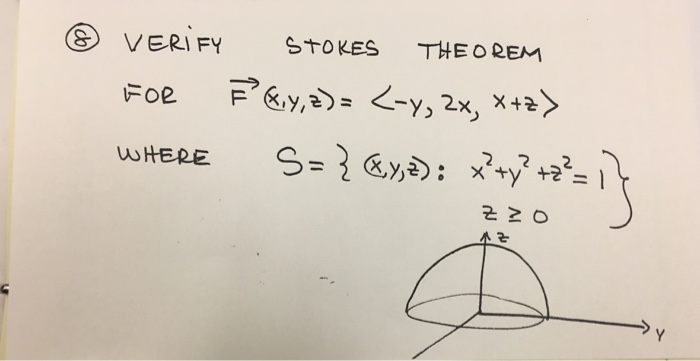 ⑧ VERIFY STOKES THEOREM
FOR F⃗(x,y,z) = <-y, 2x, x+z>
WHERE S = { (x,y,z): x²+y²+z² = 1 }
z ≥ 0
z
y